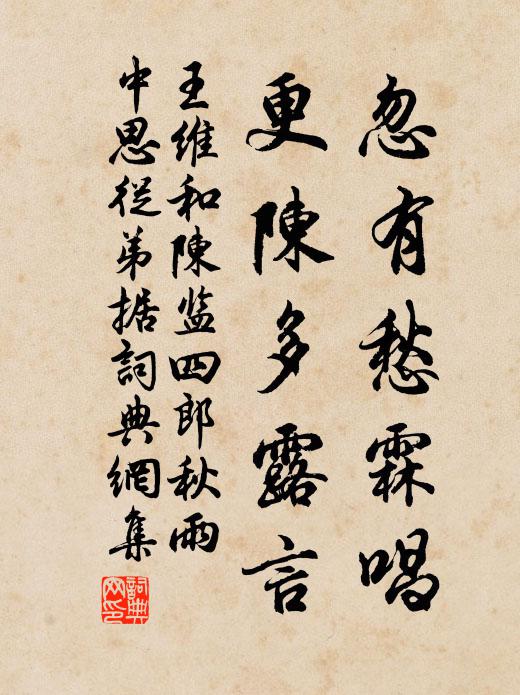 忽有愁霖唱
更陳多露言
王維和陳監四郎秋雨
中思從弟据詞典網集
詞典網印